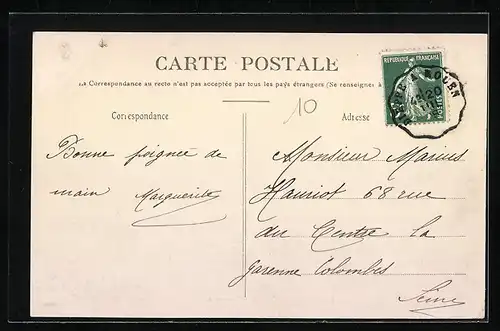 CARTE POSTALE
La Correspondance au recto n'est pas acceptée par tous les pays étrangers (Se renseigner à
REPUBLIQUE FRANÇAISE
POSTES
ROUEN
20
10
Correspondance
Adresse
Bonne poignée de
main Marguerite
Monsieur Marius
Hauriot 68 rue
du Centre la
garenne Colombes
Seine